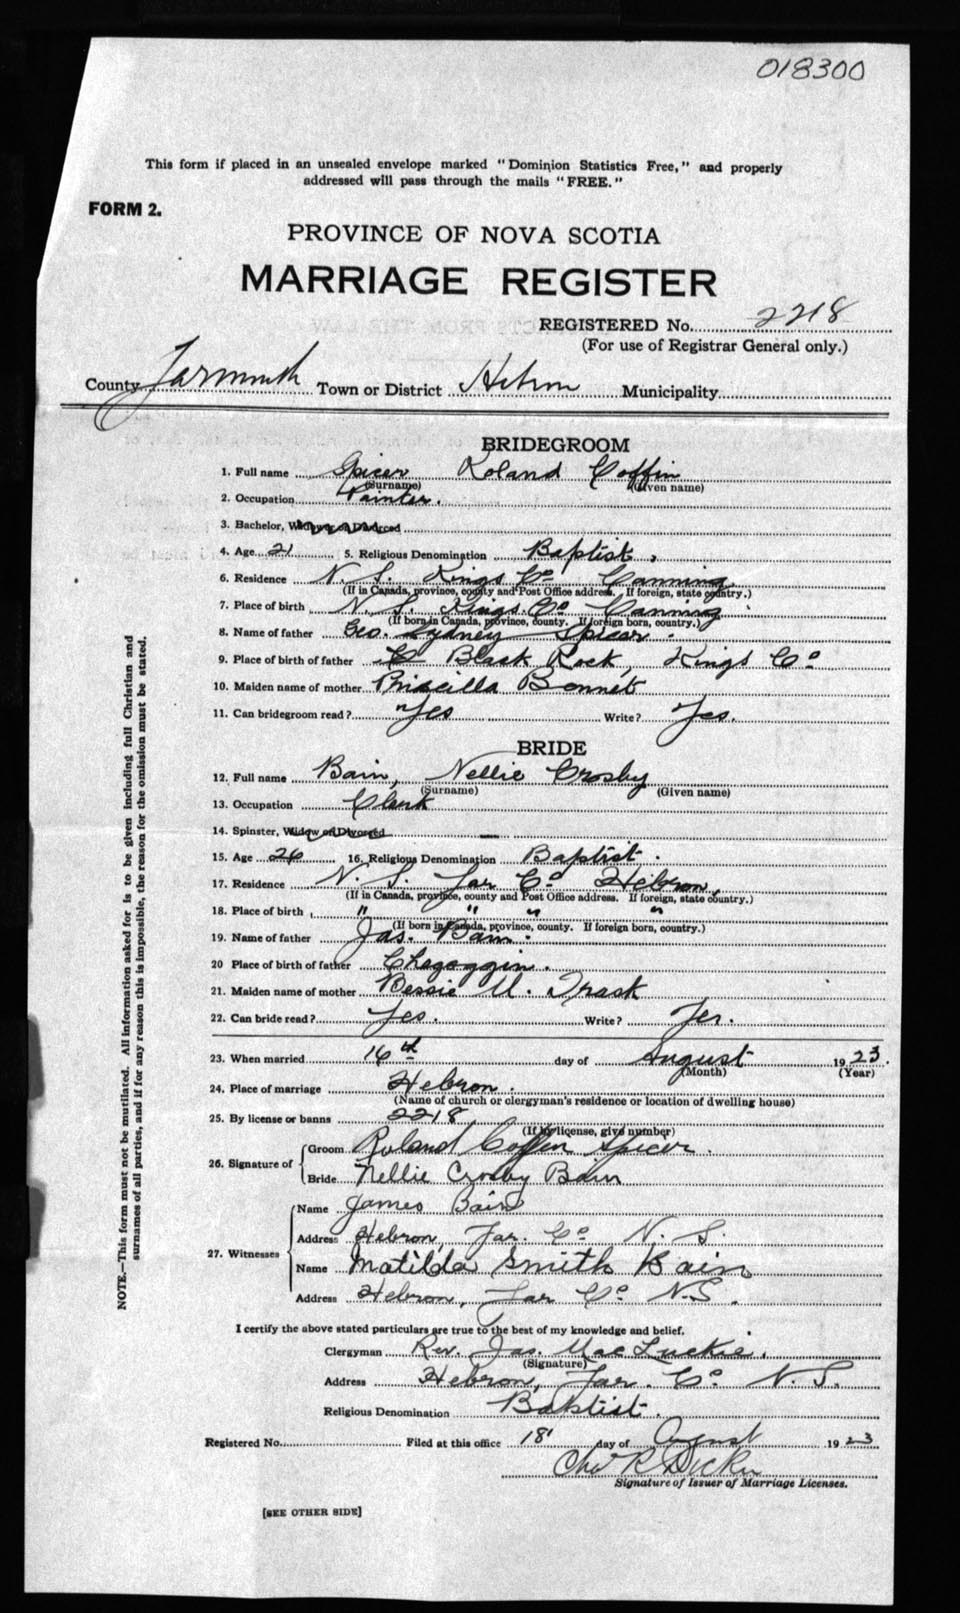 018300
This form if placed in an unsealed envelope marked "Dominion Statistics Free," and properly
addressed will pass through the mails "FREE."
FORM 2.
PROVINCE OF NOVA SCOTIA
MARRIAGE REGISTER
REGISTERED No. 2218
(For use of Registrar General only.)
County Yarmouth Town or District Hebron Municipality
BRIDEGROOM
1. Full name Spicer Roland Coffin
(Surname) (Given name)
2. Occupation Painter.
3. Bachelor, Widower or Divorced
4. Age 21 5. Religious Denomination Baptist.
6. Residence N. S. Kings Co Canning
(If in Canada, province, county and Post Office address. If foreign, state country.)
7. Place of birth N. S. Kings Co Canning
(If born in Canada, province, county. If foreign born, country.)
8. Name of father Geo. Sydney Spicer.
9. Place of birth of father Black Rock, Kings Co
10. Maiden name of mother Priscilla Bonnet
11. Can bridegroom read? Yes Write? Yes.
BRIDE
12. Full name Bain, Nellie Crosby
(Surname) (Given name)
13. Occupation Clerk
14. Spinster, Widow or Divorced
15. Age 26 16. Religious Denomination Baptist.
17. Residence N. S. Yar Co Hebron,
(If in Canada, province, county and Post Office address. If foreign, state country.)
18. Place of birth " " " "
(If born in Canada, province, county. If foreign born, country.)
19. Name of father Jas. Bain.
20 Place of birth of father Chegoggin.
21. Maiden name of mother Bessie M. Trask
22. Can bride read? Yes. Write? Yes.
23. When married 16th day of August 1923.
(Month) (Year)
24. Place of marriage Hebron.
(Name of church or clergyman's residence or location of dwelling house)
25. By license or banns 2218
(If by license, give number)
26. Signature of Groom Roland Coffin Spicer.
Bride Nellie Crosby Bain
27. Witnesses Name James Bain
Address Hebron, Yar. Co. N. S.
Name Matilda Smith Bain
Address Hebron, Yar Co. N.S.
I certify the above stated particulars are true to the best of my knowledge and belief.
Clergyman Rev. Jas. MacLuckie.
(Signature)
Address Hebron, Yar. Co. N. S.
Religious Denomination Baptist.
Registered No. Filed at this office 18 day of August 1923
Signature of Issuer of Marriage Licenses.
[SEE OTHER SIDE]
NOTE.—This form must not be mutilated. All information asked for is to be given including full Christian and
surnames of all parties, and if for any reason this is impossible, the reason for the omission must be stated.